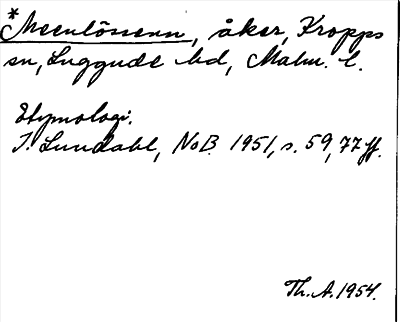 *Meenlösenn, åker, Kropps
sn, Luggude hd, Malm. l.
Etymologi.
I. Lundahl, NoB. 1951, s. 59, 77 ff.
Th. A. 1954.